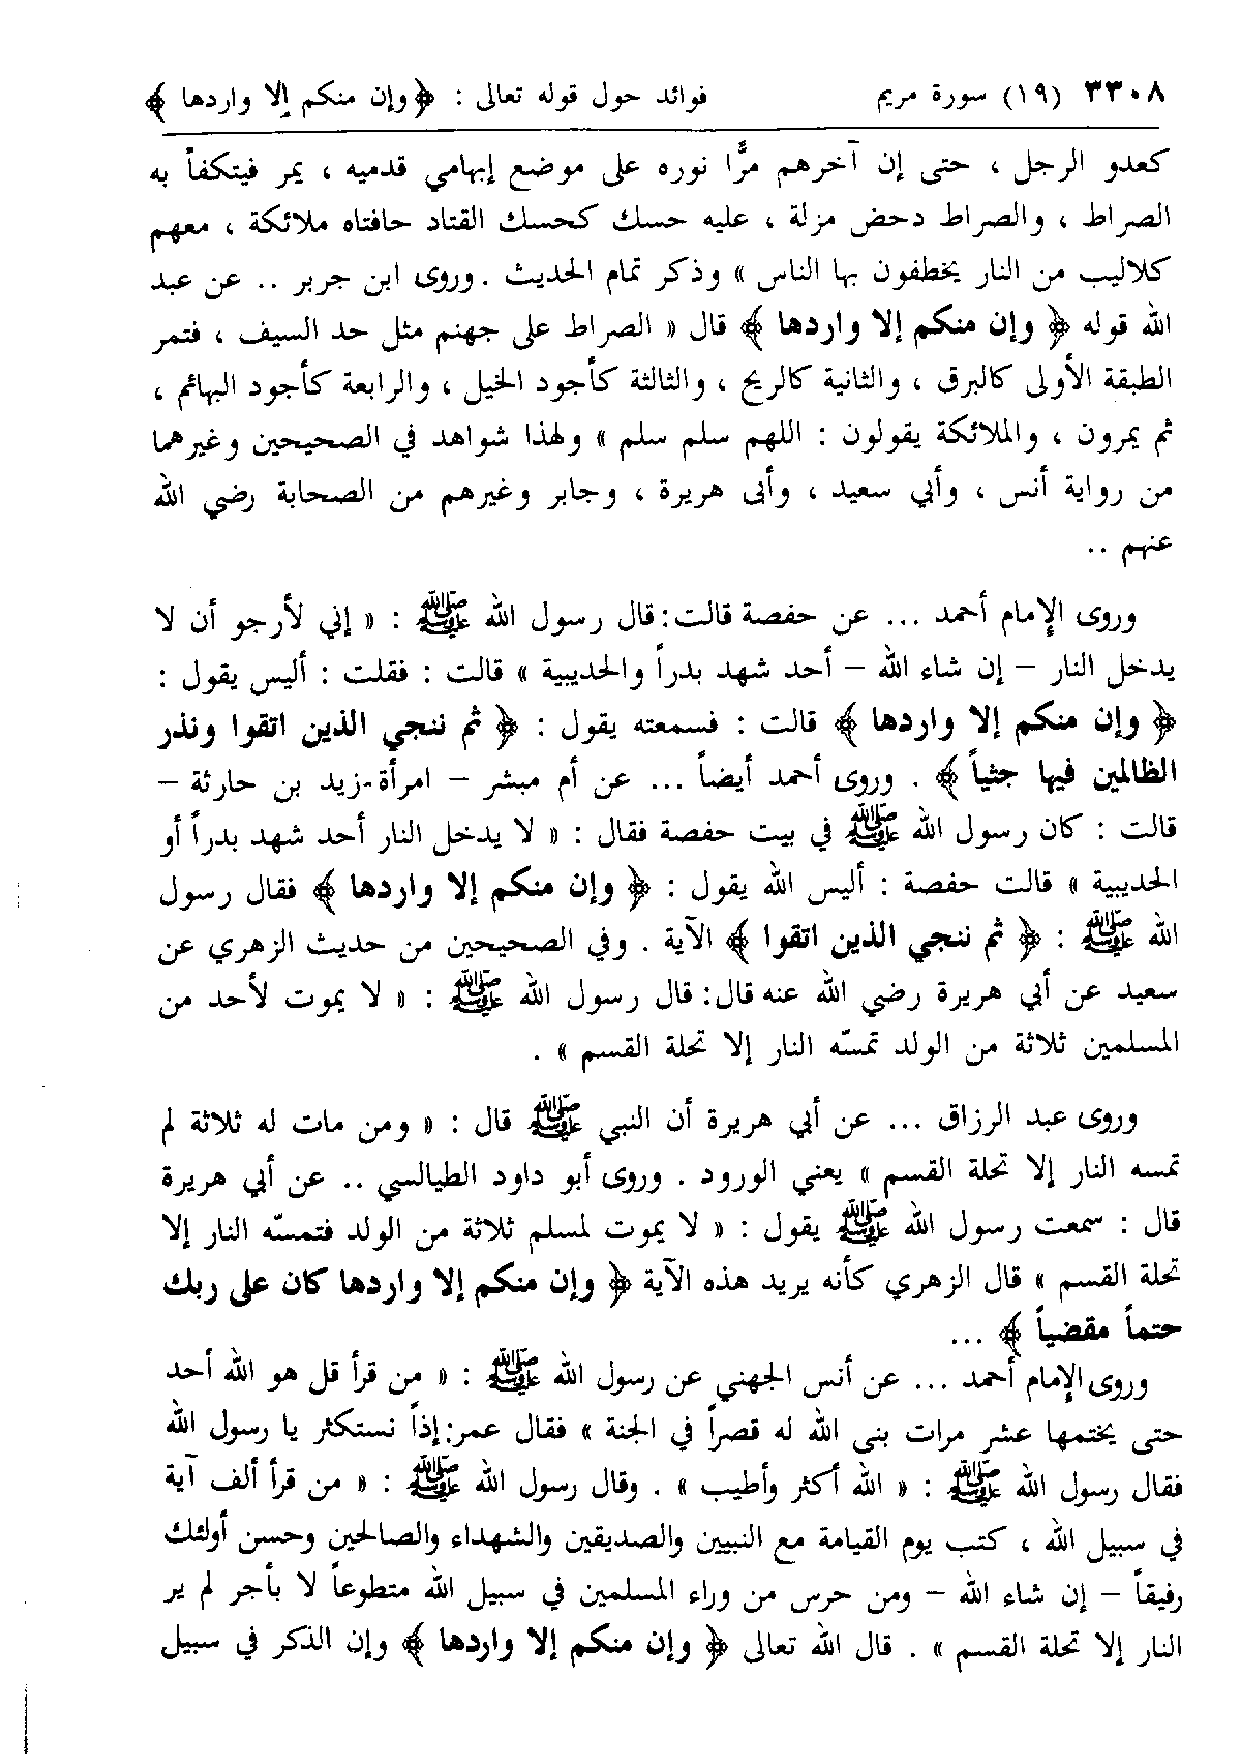 ٣٣٠٨ (١٩) سورة مريم فوائد حول قوله تعالى : ﴿ وإن منكم إلا واردها ﴾
كعدو الرجل ، حتى إن آخرهم مرًّا نوره على موضع إبهامي قدميه ، يمر فيتكفأ به
الصراط ، والصراط دحض مزلة ، عليه حسك كحسك القتاد حافتاه ملائكة ، معهم
كلاليب من النار يخطفون بها الناس » وذكر تمام الحديث . وروى ابن جرير .. عن عبد
الله قوله ﴿ وإن منكم إلا واردها ﴾ قال « الصراط على جهنم مثل حد السيف ، فتمر
الطبقة الأولى كالبرق ، والثانية كالريح ، والثالثة كأجود الخيل ، والرابعة كأجود البهائم ،
ثم يمرون ، والملائكة يقولون : اللهم سلم سلم » ولهذا شواهد في الصحيحين وغيرهما
من رواية أنس ، وأبي سعيد ، وأبى هريرة ، وجابر وغيرهم من الصحابة رضي الله
عنهم ..
وروى الإمام أحمد ... عن حفصة قالت : قال رسول الله ﷺ : « إني لأرجو أن لا
يدخل النار – إن شاء الله – أحد شهد بدراً والحديبية » قالت : فقلت : أليس يقول :
﴿ وإن منكم إلا واردها ﴾ قالت : فسمعته يقول : ﴿ ثم ننجي الذين اتقوا ونذر
الظالمين فيها جثياً ﴾ . وروى أحمد أيضاً ... عن أم مبشر – امرأة زيد بن حارثة –
قالت : كان رسول الله ﷺ في بيت حفصة فقال : « لا يدخل النار أحد شهد بدراً أو
الحديبية » قالت حفصة : أليس الله يقول : ﴿ وإن منكم إلا واردها ﴾ فقال رسول
الله ﷺ : ﴿ ثم ننجي الذين اتقوا ﴾ الآية . وفي الصحيحين من حديث الزهري عن
سعيد عن أبي هريرة رضي الله عنه قال : قال رسول الله ﷺ : « لا يموت لأحد من
المسلمين ثلاثة من الولد تمسّه النار إلا تحلة القسم » .
وروى عبد الرزاق ... عن أبي هريرة أن النبي ﷺ قال : « ومن مات له ثلاثة لم
تمسه النار إلا تحلة القسم » يعني الورود . وروى أبو داود الطيالسي .. عن أبي هريرة
قال : سمعت رسول الله ﷺ يقول : « لا يموت لمسلم ثلاثة من الولد فتمسّه النار إلا
تحلة القسم » قال الزهري كأنه يريد هذه الآية ﴿ وإن منكم إلا واردها كان على ربك
حتماً مقضياً ﴾ ...
وروى الإمام أحمد ... عن أنس الجهني عن رسول الله ﷺ : « من قرأ قل هو الله أحد
حتى يختمها عشر مرات بنى الله له قصراً في الجنة » فقال عمر : إذاً نستكثر يا رسول الله
فقال رسول الله ﷺ : « الله أكثر وأطيب » . وقال رسول الله ﷺ : « من قرأ ألف آية
في سبيل الله ، كتب يوم القيامة مع النبيين والصديقين والشهداء والصالحين وحسن أولئك
رفيقاً – إن شاء الله – ومن حرس من وراء المسلمين في سبيل الله متطوعاً لا بأجر لم ير
النار إلا تحلة القسم » . قال الله تعالى ﴿ وإن منكم إلا واردها ﴾ وإن الذكر في سبيل